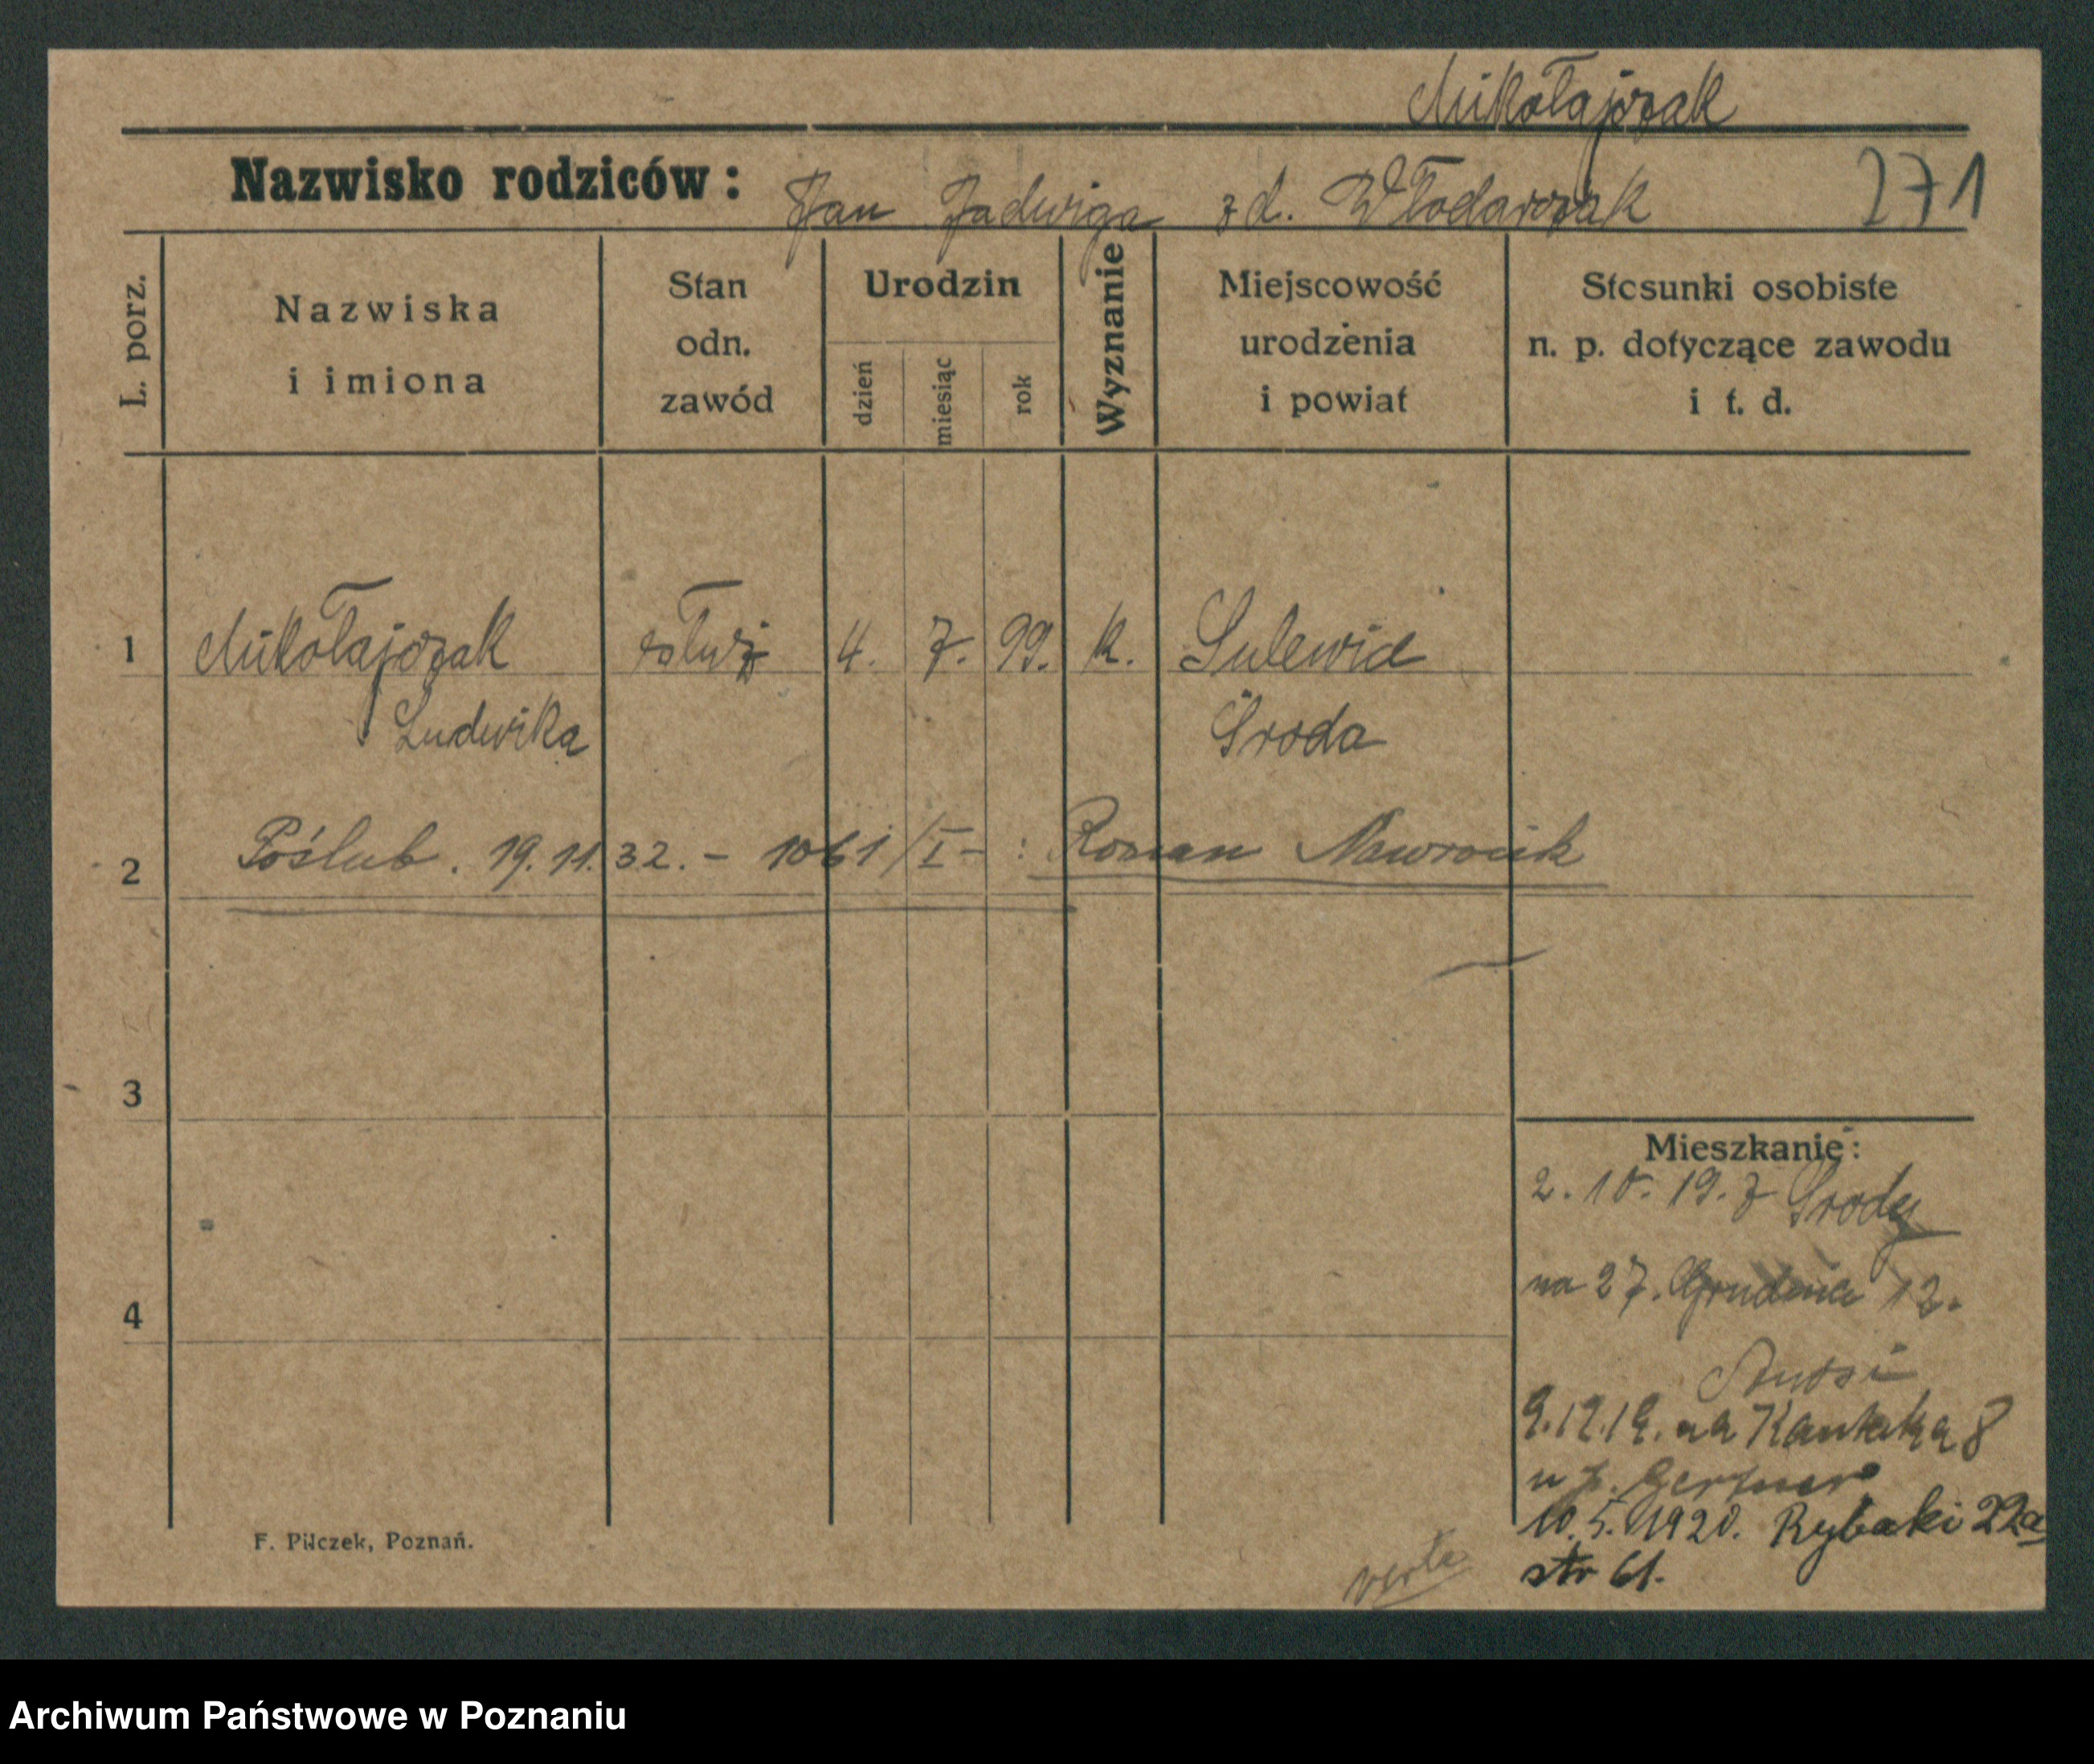 Mikołajczak
Nazwisko rodziców: Jan Jadwiga z d. Włodarczak 271
L. porz.
Nazwiska i imiona
Stan odn. zawód
Urodzin
dzień
miesiąc
rok
Wyznanie
Miejscowość urodzenia i powiat
Stosunki osobiste n. p. dotyczące zawodu i t. d.
1 Mikołajczak służ 4. 7. 99. k.
Ludwika Środa
2 Poślub. 19.11.32. - 1061/I - : Roman
3
Mieszkanie:
2. 10. 19. z Środy
4
na 27. Grudnia 12.
9.12.19. na Kantaka 8
u p. Gertner
10. 5. 1920. Rybaki 22a
str 61.
F. Pilczek, Poznań.
verte
Archiwum Państwowe w Poznaniu